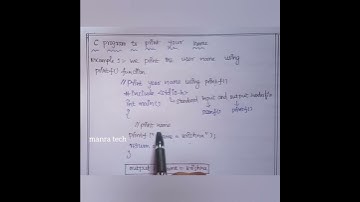 C program to print your name
Example :- we print the user name using
printf() function
// Print your name using printf()
# include <stdio.h>
int main() Standard input and output header file
{ scanf() printf()
// print name
printf (" name = krishna" );
return
manra tech
output : name = krishna